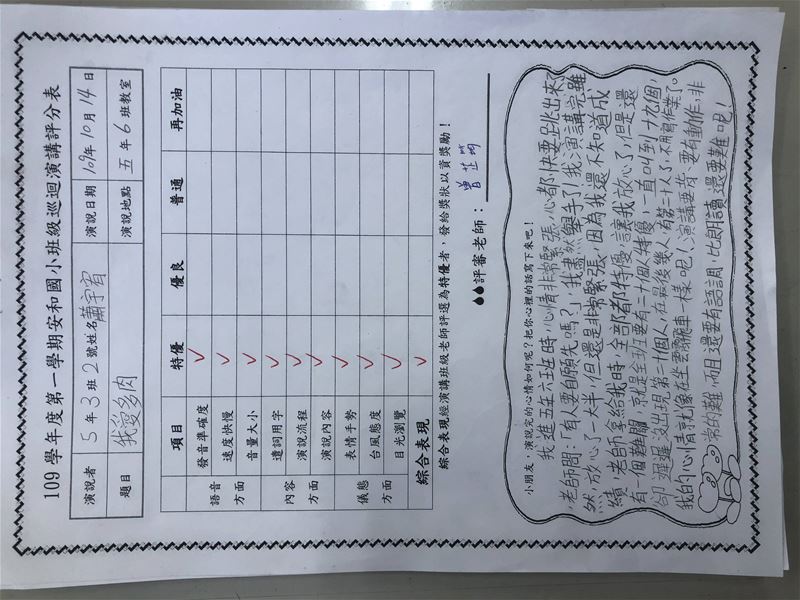 109學年度第一學期安和國小班級巡迴演講評分表
演說者 5年3班2號姓名蕭宇宥 演說日期 109年10月14日
題目 我愛多肉 演說地點 五年6班教室
項目 特優 優良 普通 再加油
語音方面 發音準確度 ✓
速度快慢 ✓
音量大小 ✓
內容方面 遣詞用字 ✓
演說流程 ✓
演說內容 ✓
儀態方面 表情手勢 ✓
台風態度 ✓
目光瀏覽 ✓
綜合表現 ✓
綜合表現經演講班級老師評選為特優者，發給獎狀以資獎勵！
評審老師：曾芷
小朋友，演說完的心情如何呢？把你心裡的話寫下來吧！
我進五年六班時，心情非常緊張，心都快要跳出來了
，老師問：「有人要自願先嗎？」，我盡然舉手了！我演講完雖
然放心了一大半，但還是非常緊張，因為我還不知道成
績，老師拿給我時，全部都特優，讓我放心了，但是還
有一個難關，就是全班要有二十個人特優，一直叫到十九個，
卻遲遲沒出現第二十個人，在最後幾人，有第二十人了，不用寫作業了。
我的心情就像在坐雲霄飛車一樣呢！演講要背、要有動作，非
常的難，而且還要有語調，比朗讀還要難呢！